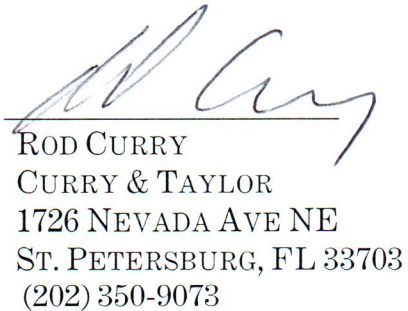 ROD CURRY
CURRY & TAYLOR
1726 NEVADA AVE NE
ST. PETERSBURG, FL 33703
(202) 350-9073